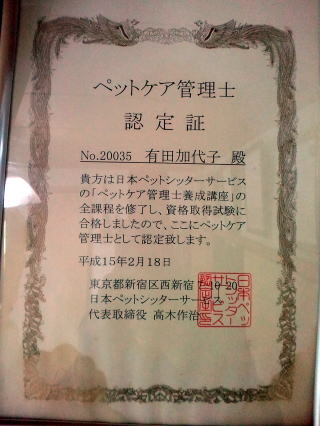 ペットケア管理士
認定証
No.20035 有田加代子 殿
貴方は日本ペットシッターサービス
の「ペットケア管理士養成講座」の
全課程を修了し、資格取得試験に
合格しましたので、ここにペットケア
管理士として認定致します。
平成15年2月18日
東京都新宿区西新宿7-10-20
日本ペットシッターサービス
代表取締役 高木作治
日本ペッ
トシッター
サービス